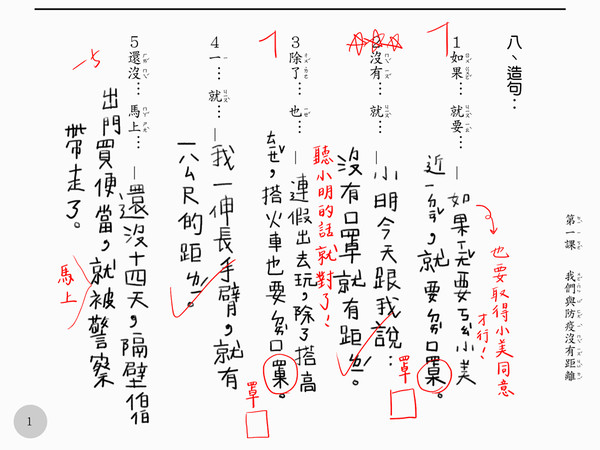 第一課 我們與防疫沒有距離
八、造句：
1如果… 就要…—如果 要 小美
近一 ，就要 口 。
也要取得小美同意
才行！
罩
2沒有… 就…—小明今天跟我說：
沒有口罩就有距 。
聽小明的話就對了！
3除了… 也…—連假出去玩，除了搭高
，搭火車也要 口 。
罩
4一… 就…—我一伸長手臂，就有
一公尺的距 。
5還沒… 馬上…—還沒十四天，隔壁伯伯
出門買便當，就被警察
帶走了。
馬上
-5
1